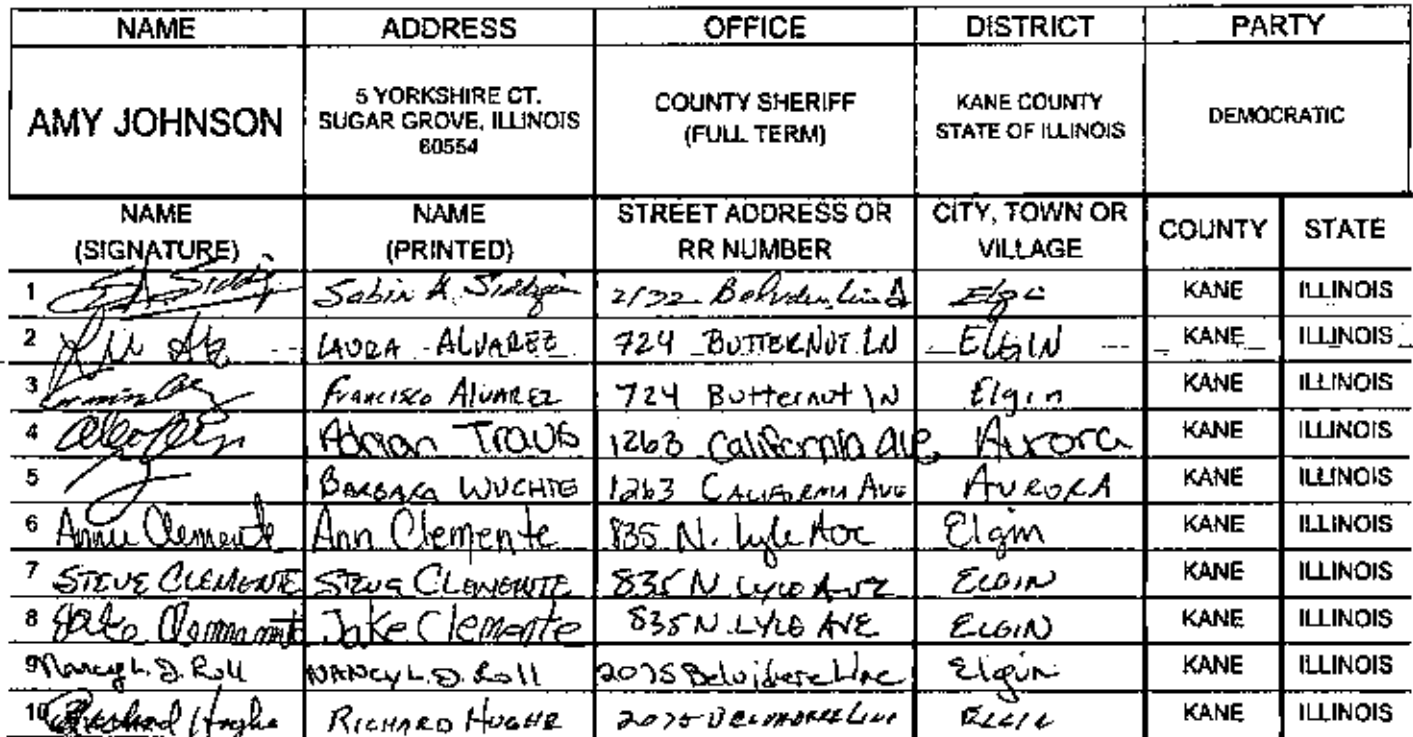 NAME ADDRESS OFFICE DISTRICT PARTY
AMY JOHNSON 5 YORKSHIRE CT. SUGAR GROVE, ILLINOIS 60554 COUNTY SHERIFF (FULL TERM) KANE COUNTY STATE OF ILLINOIS DEMOCRATIC
NAME (SIGNATURE) NAME (PRINTED) STREET ADDRESS OR RR NUMBER CITY, TOWN OR VILLAGE COUNTY STATE
1 KANE ILLINOIS
2 LAURA ALVAREZ 724 BUTTERNUT LN ELGIN KANE ILLINOIS
3 Francisco Alvarez 724 Butternut lN Elgin KANE ILLINOIS
4 Adrian 1263 California ave Aurora KANE ILLINOIS
5 BARBARA 1263 CALIFORNIA AVE AURORA KANE ILLINOIS
6 Clemente Ann Clemente 835 N. Lyle Elgin KANE ILLINOIS
7 STEVE CLEMENTE STEVE CLEMENTE 835 N LYLE AVE ELGIN KANE ILLINOIS
8 Jake Clemente 835 N. LYLE AVE ELGIN KANE ILLINOIS
9 Nancy L. D. Roll NANCY L. D. Roll 2075 Elgin KANE ILLINOIS
10 RICHARD 2075 KANE ILLINOIS